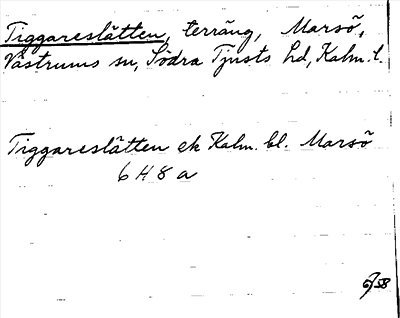 Tiggareslätten, terräng, Marsö,
Västrums sn, Södra Tjusts hd, Kalm. l.
Tiggareslätten ek Kalm. bl. Marsö
6 H 8 a
6/58